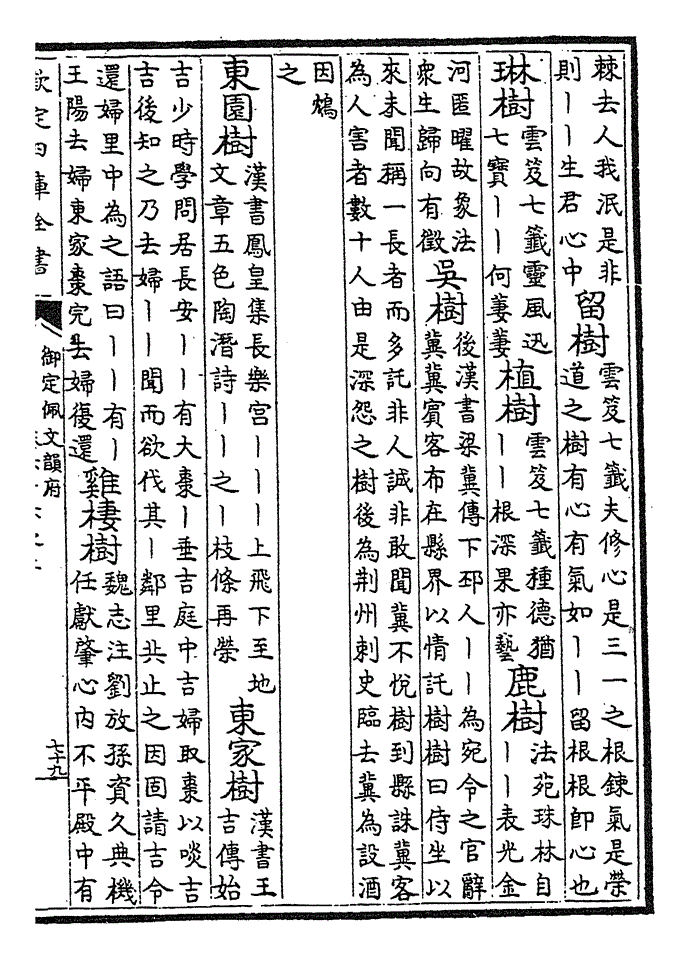 棘去人我泯是非
則丨丨生君心中
留樹
雲笈七籤夫修心是三一之根鍊氣是榮
道之樹有心有氣如丨丨留根根即心也
琳樹
雲笈七籤靈風迅
七寶丨丨何萋萋
植樹
雲笈七籤種德猶
丨丨根深果亦藝
鹿樹
法苑珠林自
丨丨表光金
河匿曜故象法
衆生歸向有徵
吳樹
後漢書梁冀傳下邳人丨丨為宛令之官辭
冀冀賓客布在縣界以情託樹樹曰侍坐以
來未聞稱一長者而多託非人誠非敢聞冀不悅樹到縣誅冀客
為人害者數十人由是深怨之樹後為荆州刺史臨去冀為設酒
因鴆
之
東園樹
漢書鳳皇集長樂宫丨丨丨上飛下至地
文章五色陶潛詩丨丨之丨枝條再榮
東家樹
漢書王
吉傳始
吉少時學問居長安丨丨有大棗丨垂吉庭中吉婦取棗以啖吉
吉後知之乃去婦丨丨聞而欲伐其丨鄰里共止之因固請吉令
還婦里中為之語曰丨丨有丨
王陽去婦東家棗完去婦復還
雞棲樹
魏志注劉放孫資久典機
任獻肇心内不平殿中有
欽定四庫全書
御定佩文韻府
七十九